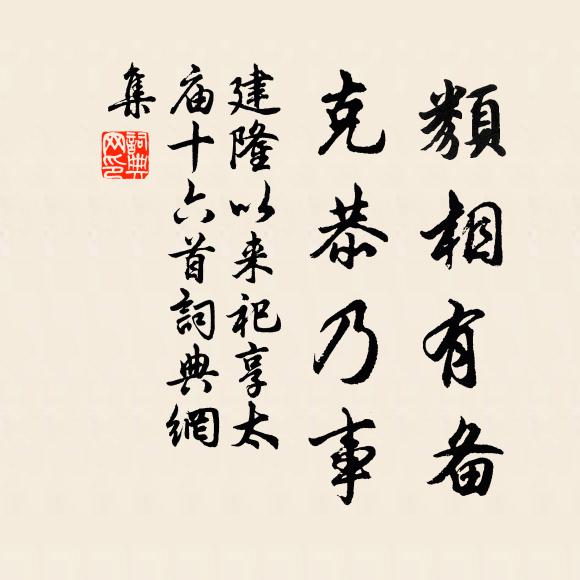 類相有备
克恭乃事
建隆以来祀享太
庙十六首詞典網
集
詞典
网印